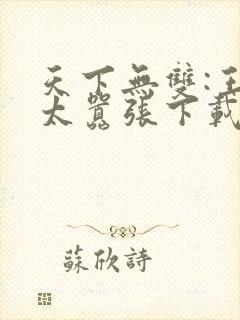 天下無雙:王
太囂張下載
蘇欣詩